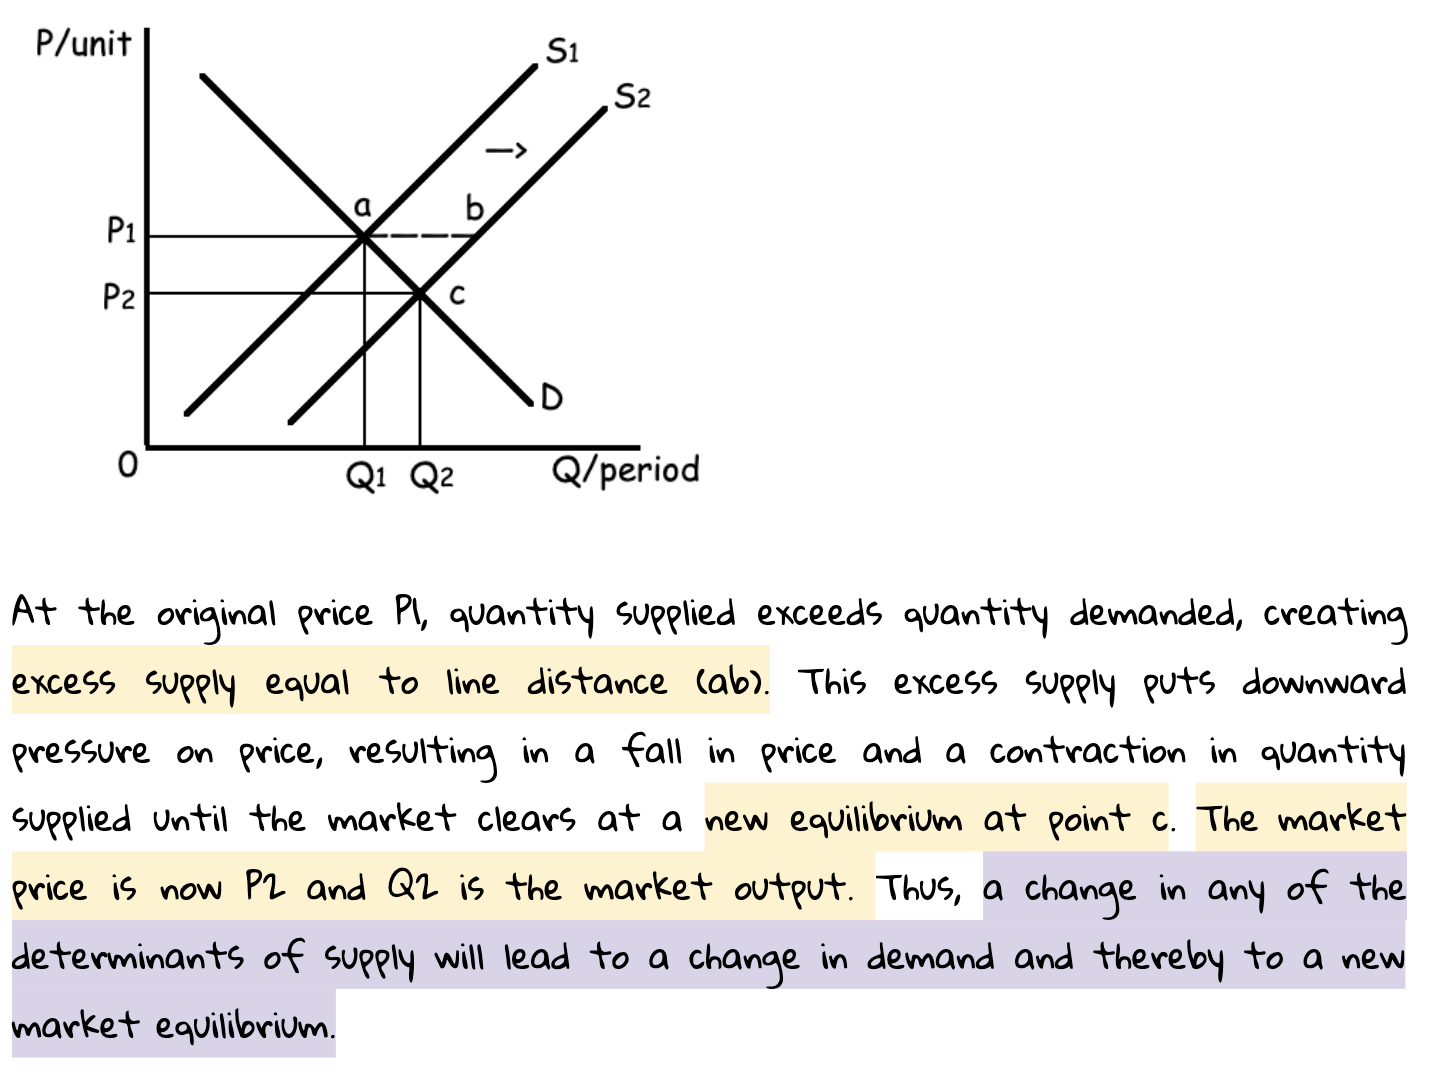 P/unit
S1
S2
—>
a
b
P1
P2
c
D
0
Q1 Q2
Q/period
At the original price P1, quantity supplied exceeds quantity demanded, creating
excess supply equal to line distance (ab). This excess supply puts downward
pressure on price, resulting in a fall in price and a contraction in quantity
supplied until the market clears at a new equilibrium at point c. The market
price is now P2 and Q2 is the market output. Thus, a change in any of the
determinants of supply will lead to a change in demand and thereby to a new
market equilibrium.